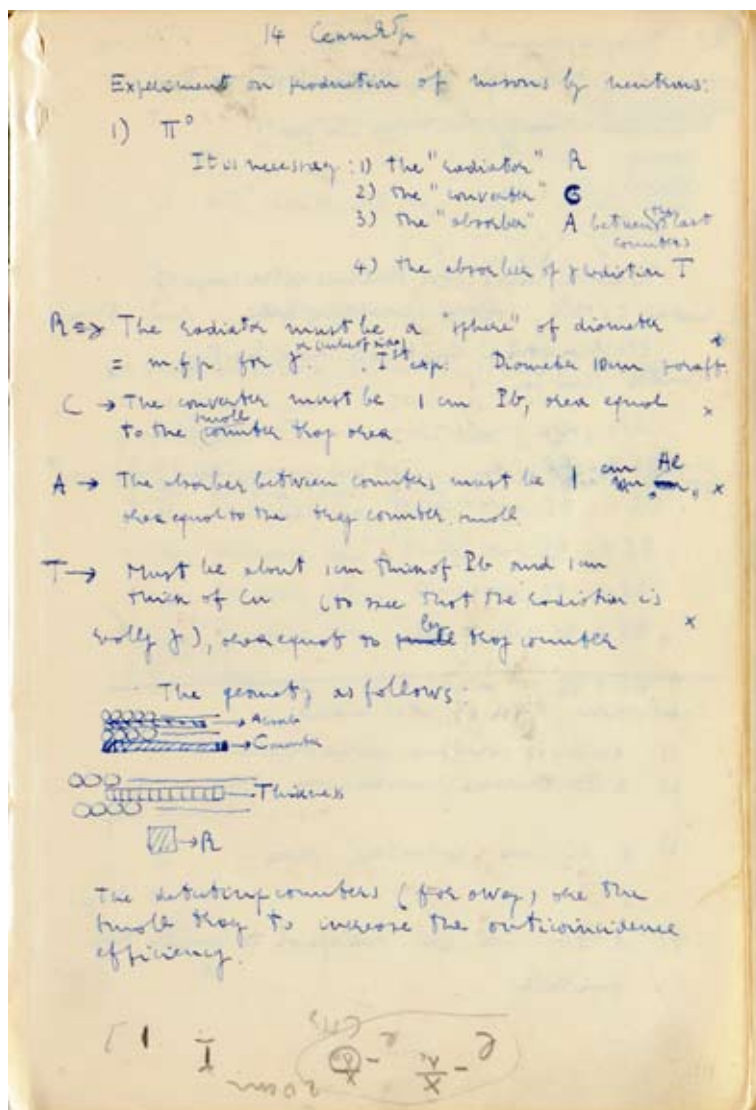 14
Experiment on production of mesons by neutrons:
1) π°
It is necessary: 1) the "radiator" R
2) the "converter" C
3) the "absorber" A between the last
counters
4) the absorber of γ radiation T
R => The radiator must be a "sphere" of diameter
or cube of side
= m.f.p. for γ. Ist exp. Diameter 10cm paraff.
C → The converter must be 1 cm Pb, area equal x
small
to the counter tray area
A → The absorber between counters must be 1 cm Al x
area equal to the tray counter small
T → Must be about 1cm thick of Pb and 1cm
thick of Cu (to see that the radiation is
really γ), area equal to big tray counter x
The geometry as follows:
→ Absorber
→ Converter
Thickness
→ R
The detecting counters (far away) are the
small tray to increase the anticoincidence
efficiency.
1)
I
20cm